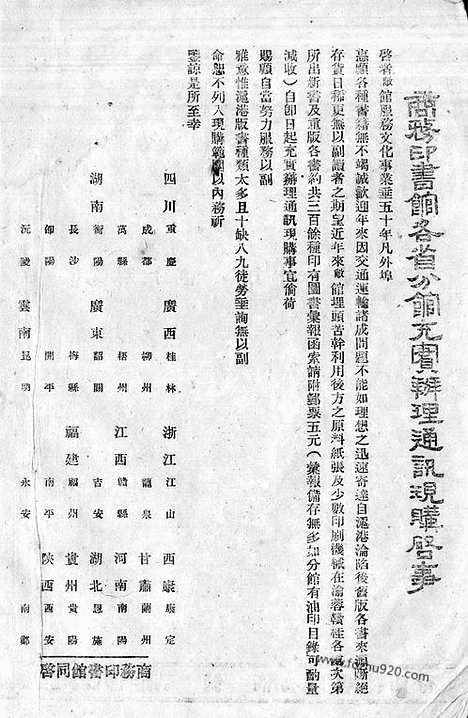 商務印書館各省分館充實辦理通訊現購啓事
啓者敝館服務文化事業垂五十年凡外埠
惠顧各種書籍無不竭誠歡迎年來因交通運輸諸成問題不能如理想之迅速寄達自滬港淪陷後舊版各書來源斷絕
存貨日稀更無以副讀者之期望近年來敝館埋頭苦幹利用後方之原料紙張及少數印刷機械在渝蓉贛桂各處次第
所出新書及重版各書約共三百餘種印有圖書彙報函索請附郵票五元(彙報備存無多如分館有油印目錄可酌量
減收)自卽日起充實辦理通訊現購事宜倘荷
賜顧自當努力服務以副
雅意惟滬港版書種類太多且十缺八九徒勞垂詢無以副
命恕不列入現購範圍以內務祈
鑒諒是所至幸
四川 重慶 成都 萬縣
湖南 衡陽 長沙 邵陽 沅陵
廣西 桂林 柳州 梧州
廣東 韶關 梅縣 開平
雲南 昆明
浙江 江山 龍泉
江西 贛縣 吉安
福建 福州 南平 永安
西康 康定
甘肅 蘭州
河南 南陽
湖北 恩施
貴州 貴陽
陝西 西安 南鄭
商務印書館同啓
www.fomu920.com